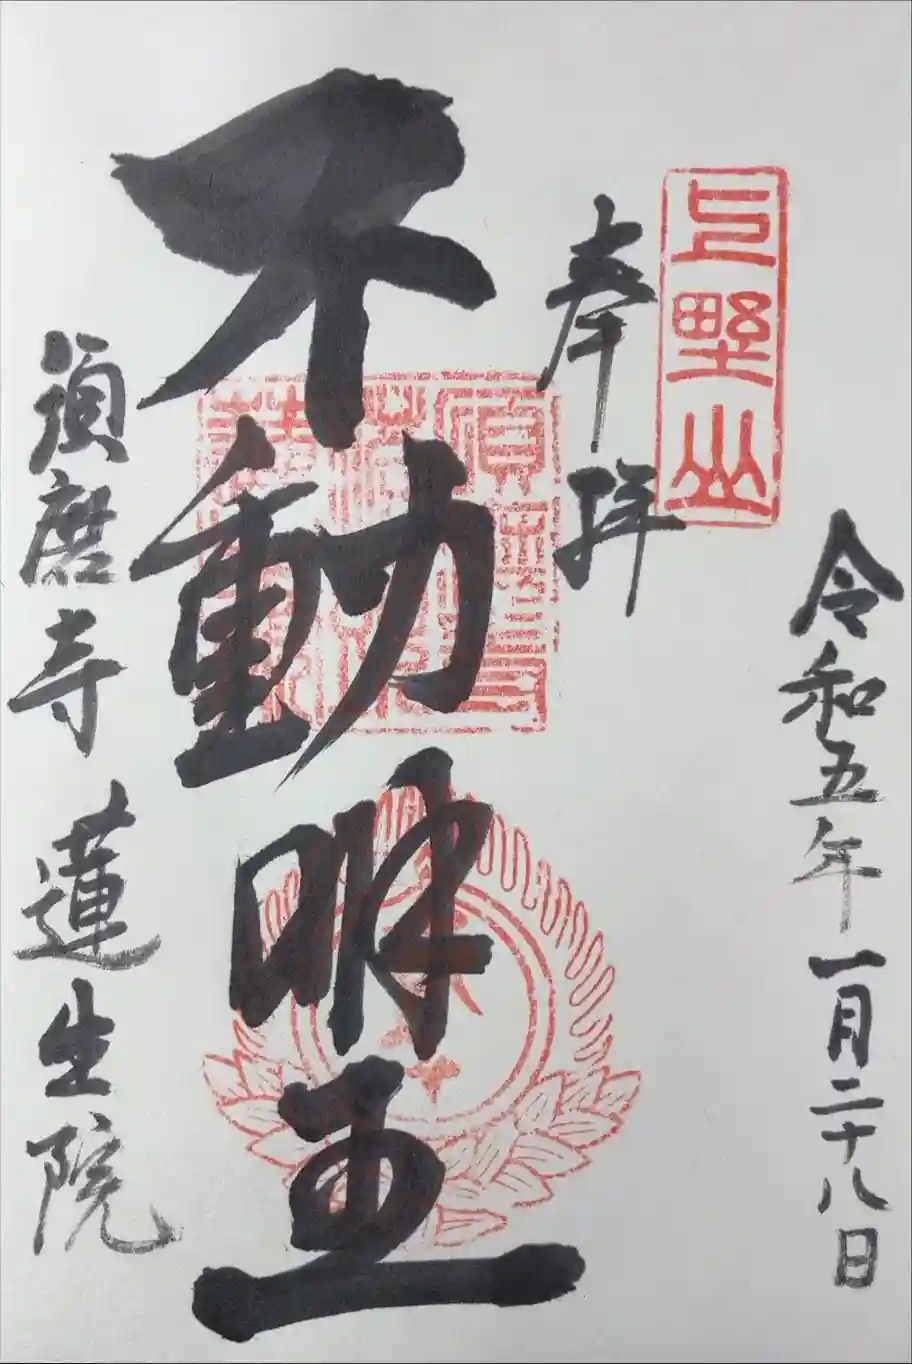 令和五年一月二十八日
上野山
奉拝
不動明王
須磨寺 蓮生院